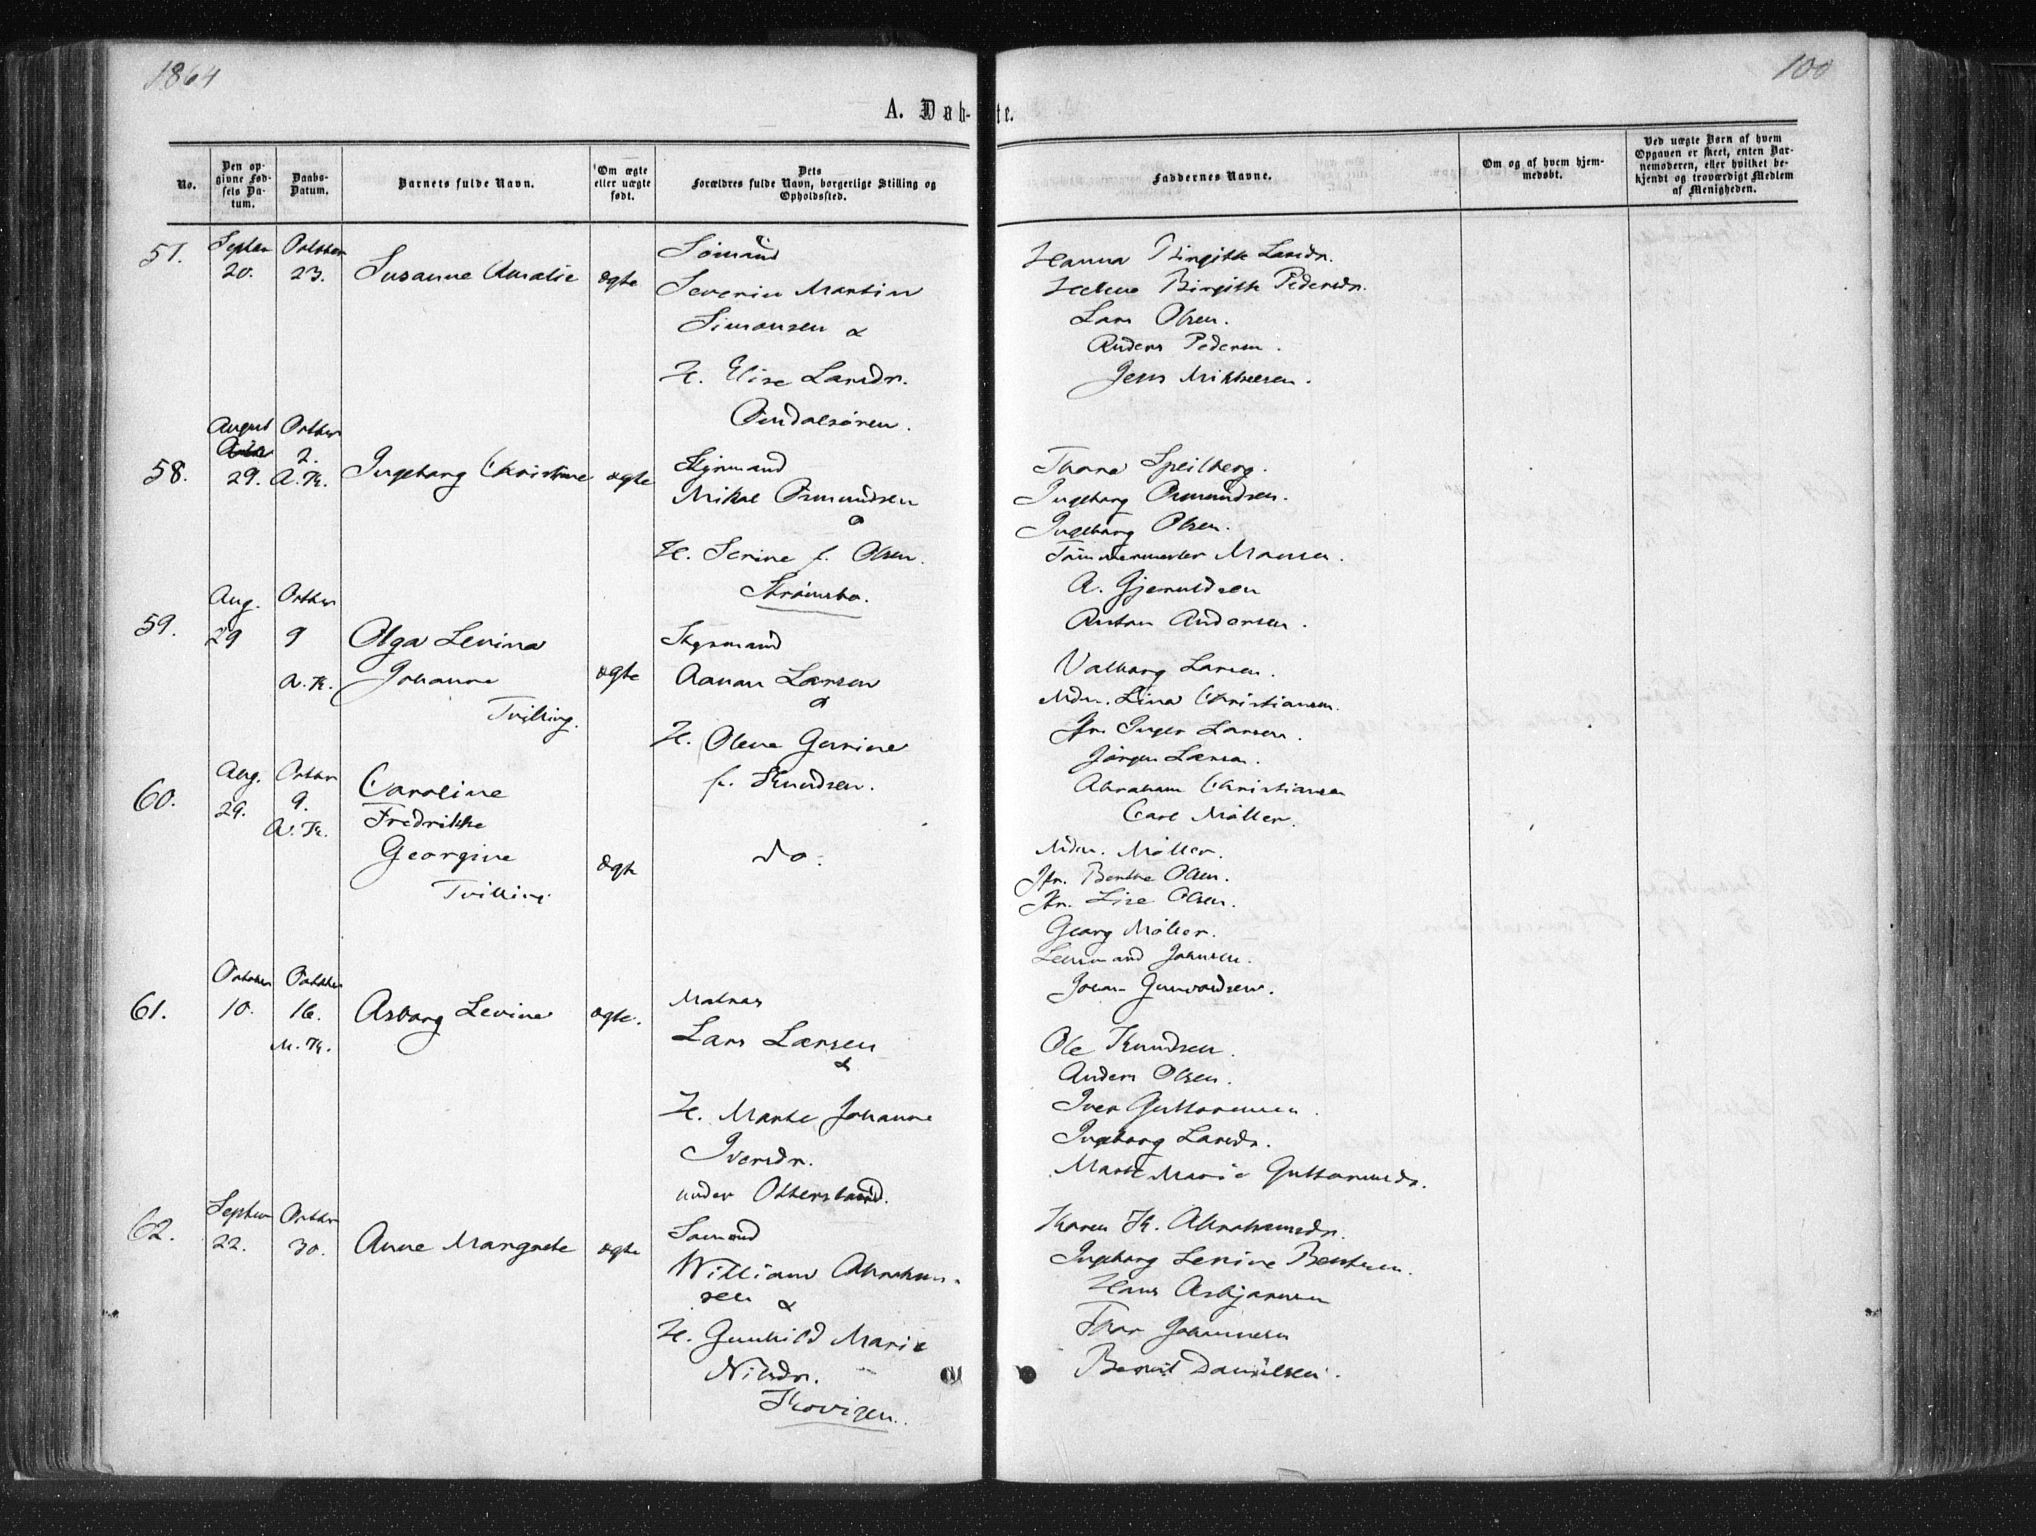 1864
100
A. Døbte.
No.
Den opgivne Fødsels Datum.
Daabs-Datum.
Barnets fulde Navn.
Om ægte eller uægte født.
Dets Forældres fulde Navn, borgerlige Stilling og Opholdssted.
Faddernes Navne.
Om og af hvem hjemmedøbt.
Ved uægte Børn af hvem Opgaven er skeet, enten Barnemoderen, eller hvilket bekjendt og troværdigt Medlem af Menigheden.
57.
Septbr 20.
Octbr 23.
Susanne Amalie
ægte
Sømand
Severin Martin
Simonsen &
H. Elise Larsdr.
Hanna Birgitte Larsdr.
Helene Birgitte Pedersdr.
Lars Olsen.
Anders Pedersen.
Jens Mikkelsen.
58.
August
29.
Octber
2.
A. K.
Ingeborg Christine
ægte
Styrmand
Mikal Osmundsen
&
H. Serine f. Olsen.
Strømsbo.
Thora Speilberg.
Ingeborg Osmundsen.
Ingeborg Olsen.
Tømmermester Monsen.
A. Gjeruldsen
Anton Andersen.
59.
Aug.
29
Octber
9
A. K.
Olga Levina
Johanne
Tvilling.
ægte
Styrmand
Aanon Larsen
&
H. Olene Gurine
f. Knudsen.
Valborg Larsen.
Mdm. Lina Christiansen.
Jfr. Inger Larsen.
Jørgen Larsen.
Abraham Christiansen
Carl Møller.
60.
Aug.
29.
Octbr
9.
A. K.
Caroline
Fredrikke
Georgine
Tvilling
ægte
do.
Mdm. Møller.
Jfr. Berthe Olsen.
Jfr. Lise Olsen.
Georg Møller.
Johnsen.
Johan Gunvaldsen.
61.
October
10.
October
16.
M. K.
Asborg Levine
ægte.
Matros
Lars Larsen
&
H. Marte Johanne
Iversdr.
under Otterstand.
Ole Knudsen.
Anders Olsen.
Iver Guttormsen.
Ingeborg Larsdr.
Marte Marie Guttormsdr.
62.
Septbr
22.
Octbr
30.
Anne Margrete
ægte
Sømand
William Abraham-
sen &
H. Gunhild Marie
Nilsdr.
Skovigen.
Karen K. Abrahamsdr.
Ingeborg Levine Bentsen.
Hans Asbjørnsen
Thor Johannesen
Bernt Danielsen.